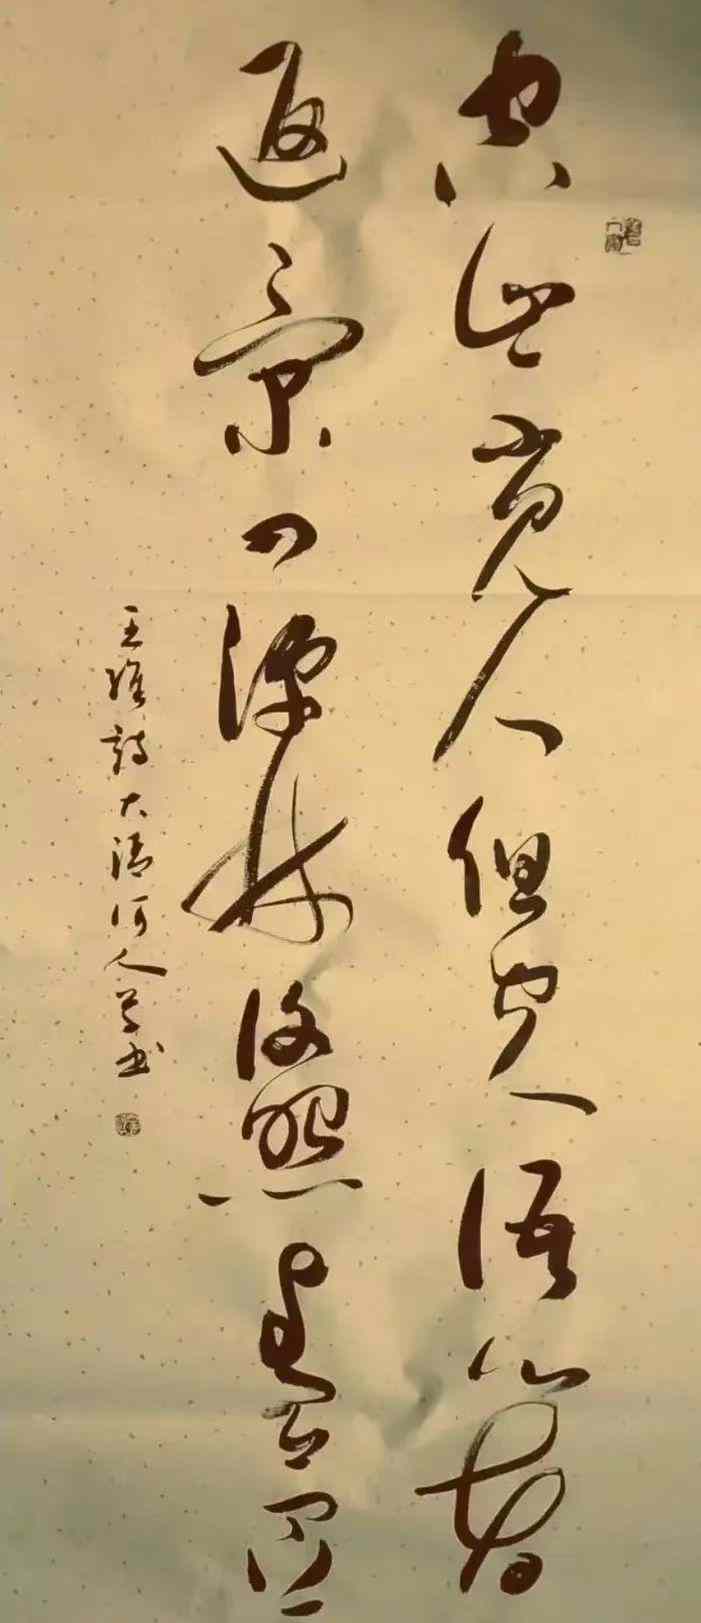 空山不見人但聞人語響
返景入深林復照青苔上
王維詩大清河人草書